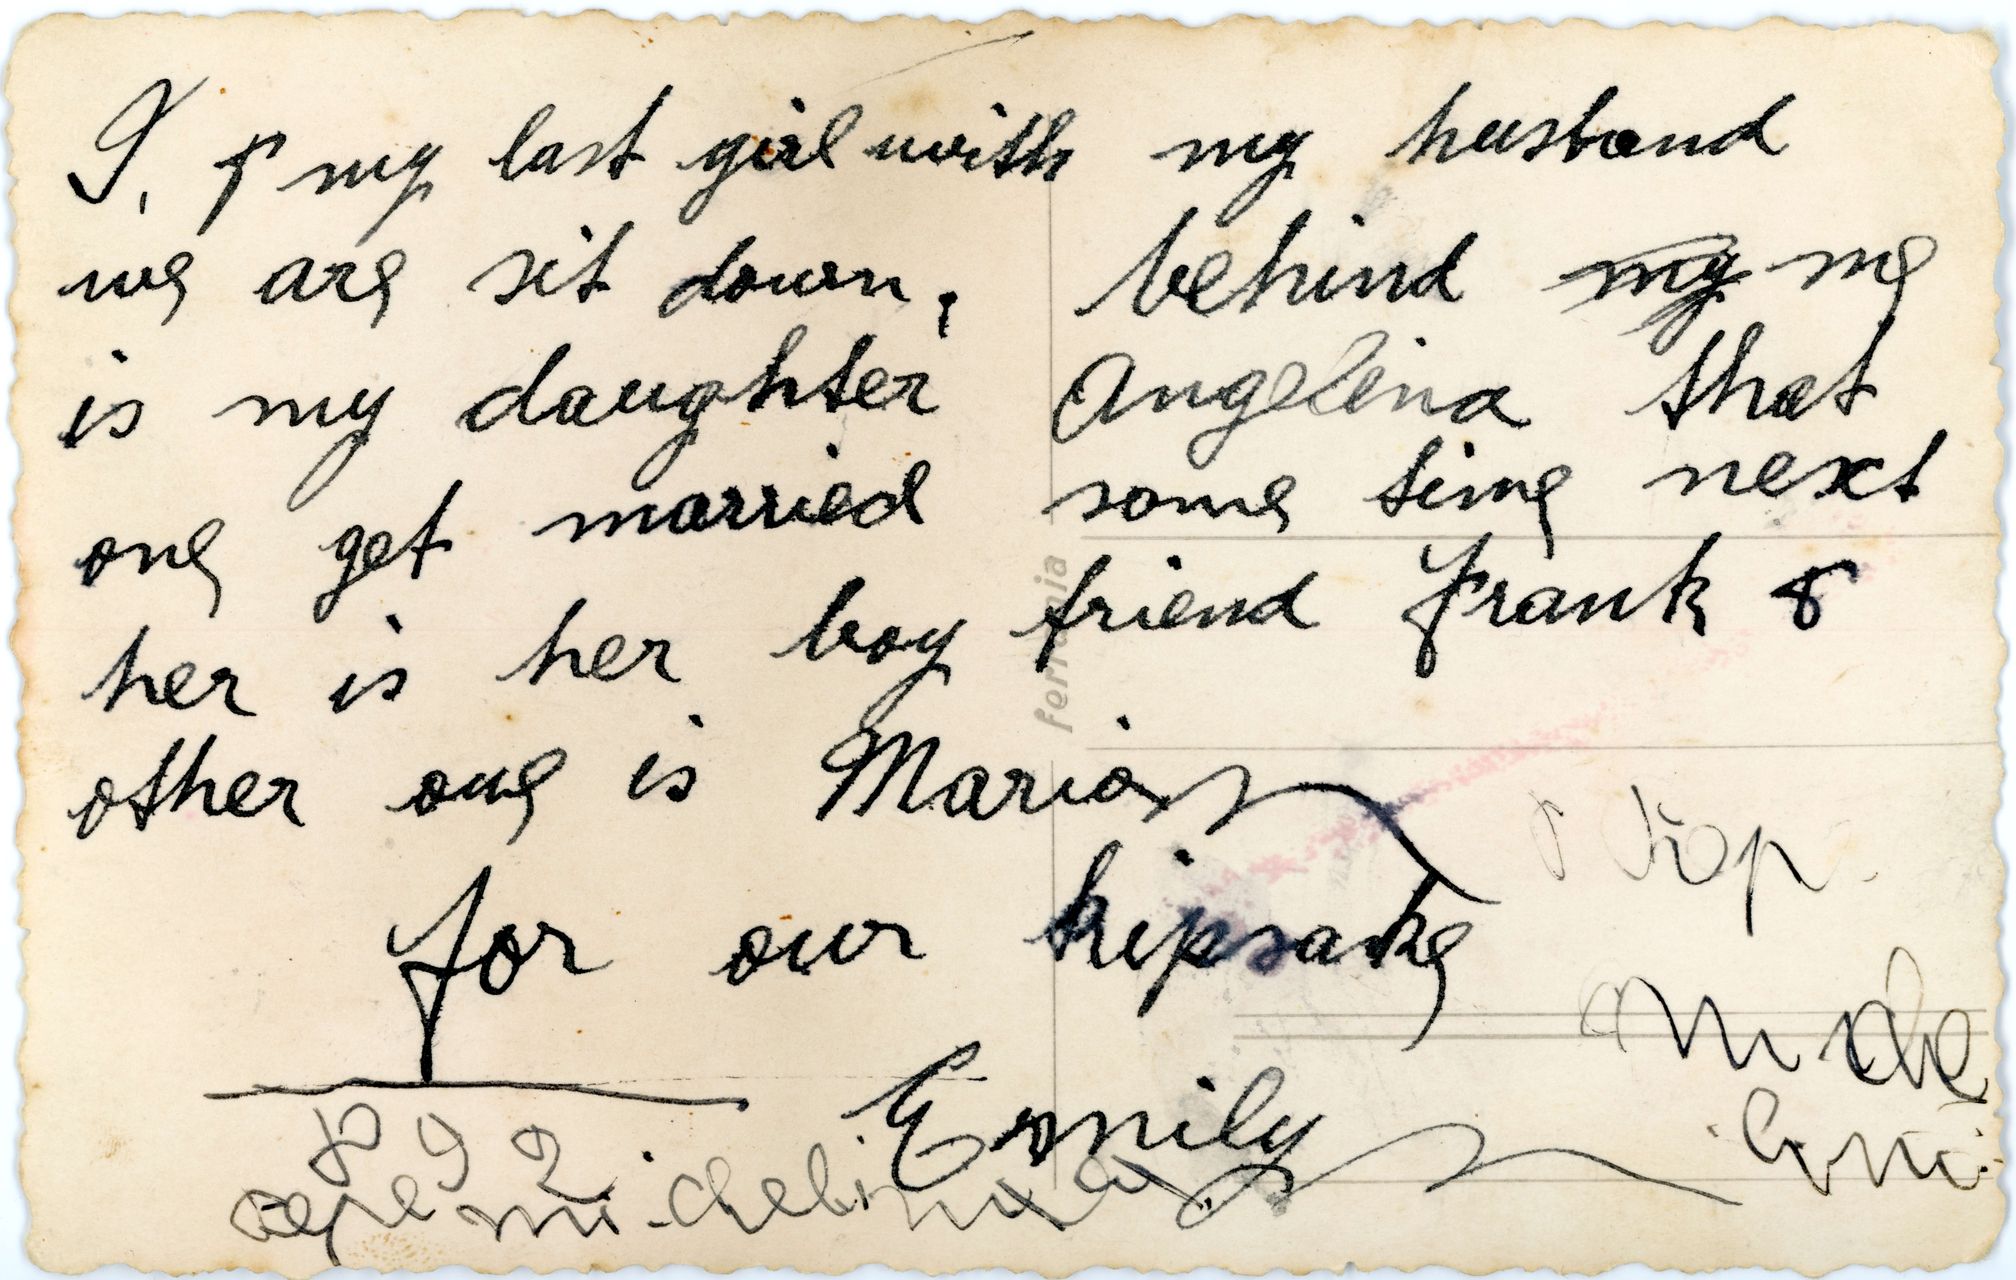 I, & my last girl with my husband
we are sit down, behind my me
is my daughter Angelina that
one get married some time next
her is her boy friend Frank &
other one is Maria
for our kipsake
Emily
892
ferrania